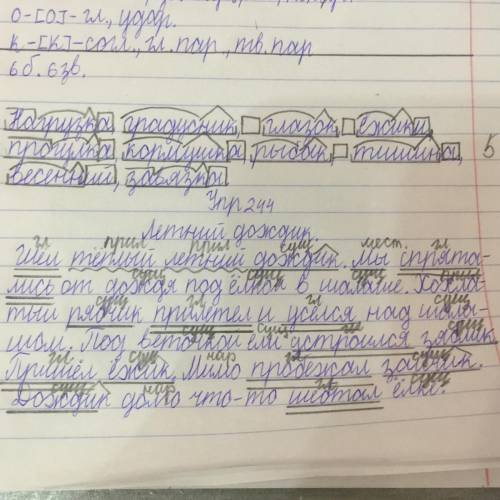 о-[о]-гл., удар.
к-[к]-согл., гл. пар., тв. пар
6 б. 6 зв.
Нагрузка, градусник, глазок, ёжики,
прогулка, кормушка, рыбак, тишина, 5
весенний, завязка.
Упр 244
Летний дождик
гл прил. прил сущ мест. гл
Шёл тёплый летний дождик. Мы спрята-
сущ сущ сущ
лись от дождя под ёлкой в шалаше. Хохла-
сущ гл гл сущ
тый рябчик прилетел и уселся над шала-
сущ сущ гл сущ
шом. Под веточкой ели устроился зяблик.
гл сущ нар гл сущ
Пришёл ёжик. Мимо пробежал зайчик.
сущ нар гл сущ
Дождик долго что-то шептал ёлке.